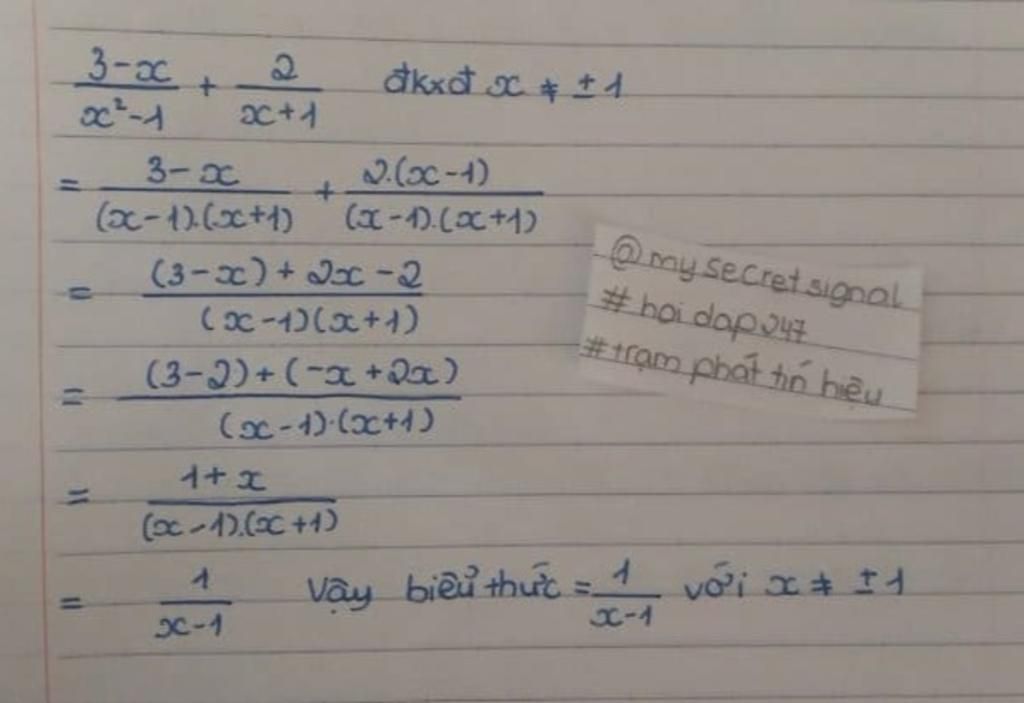 3-x/x²-1 + 2/x+1 đkxđ x ≠ ±1
= 3-x/(x-1).(x+1) + 2.(x-1)/(x-1).(x+1)
= (3-x)+2x-2/(x-1)(x+1)
= (3-2)+(-x+2x)/(x-1).(x+1)
= 1+x/(x-1).(x+1)
= 1/x-1 Vậy biểu thức = 1/x-1 với x ≠ ±1
@mysecretsignal
#hoidap247
#trạm phát tín hiệu